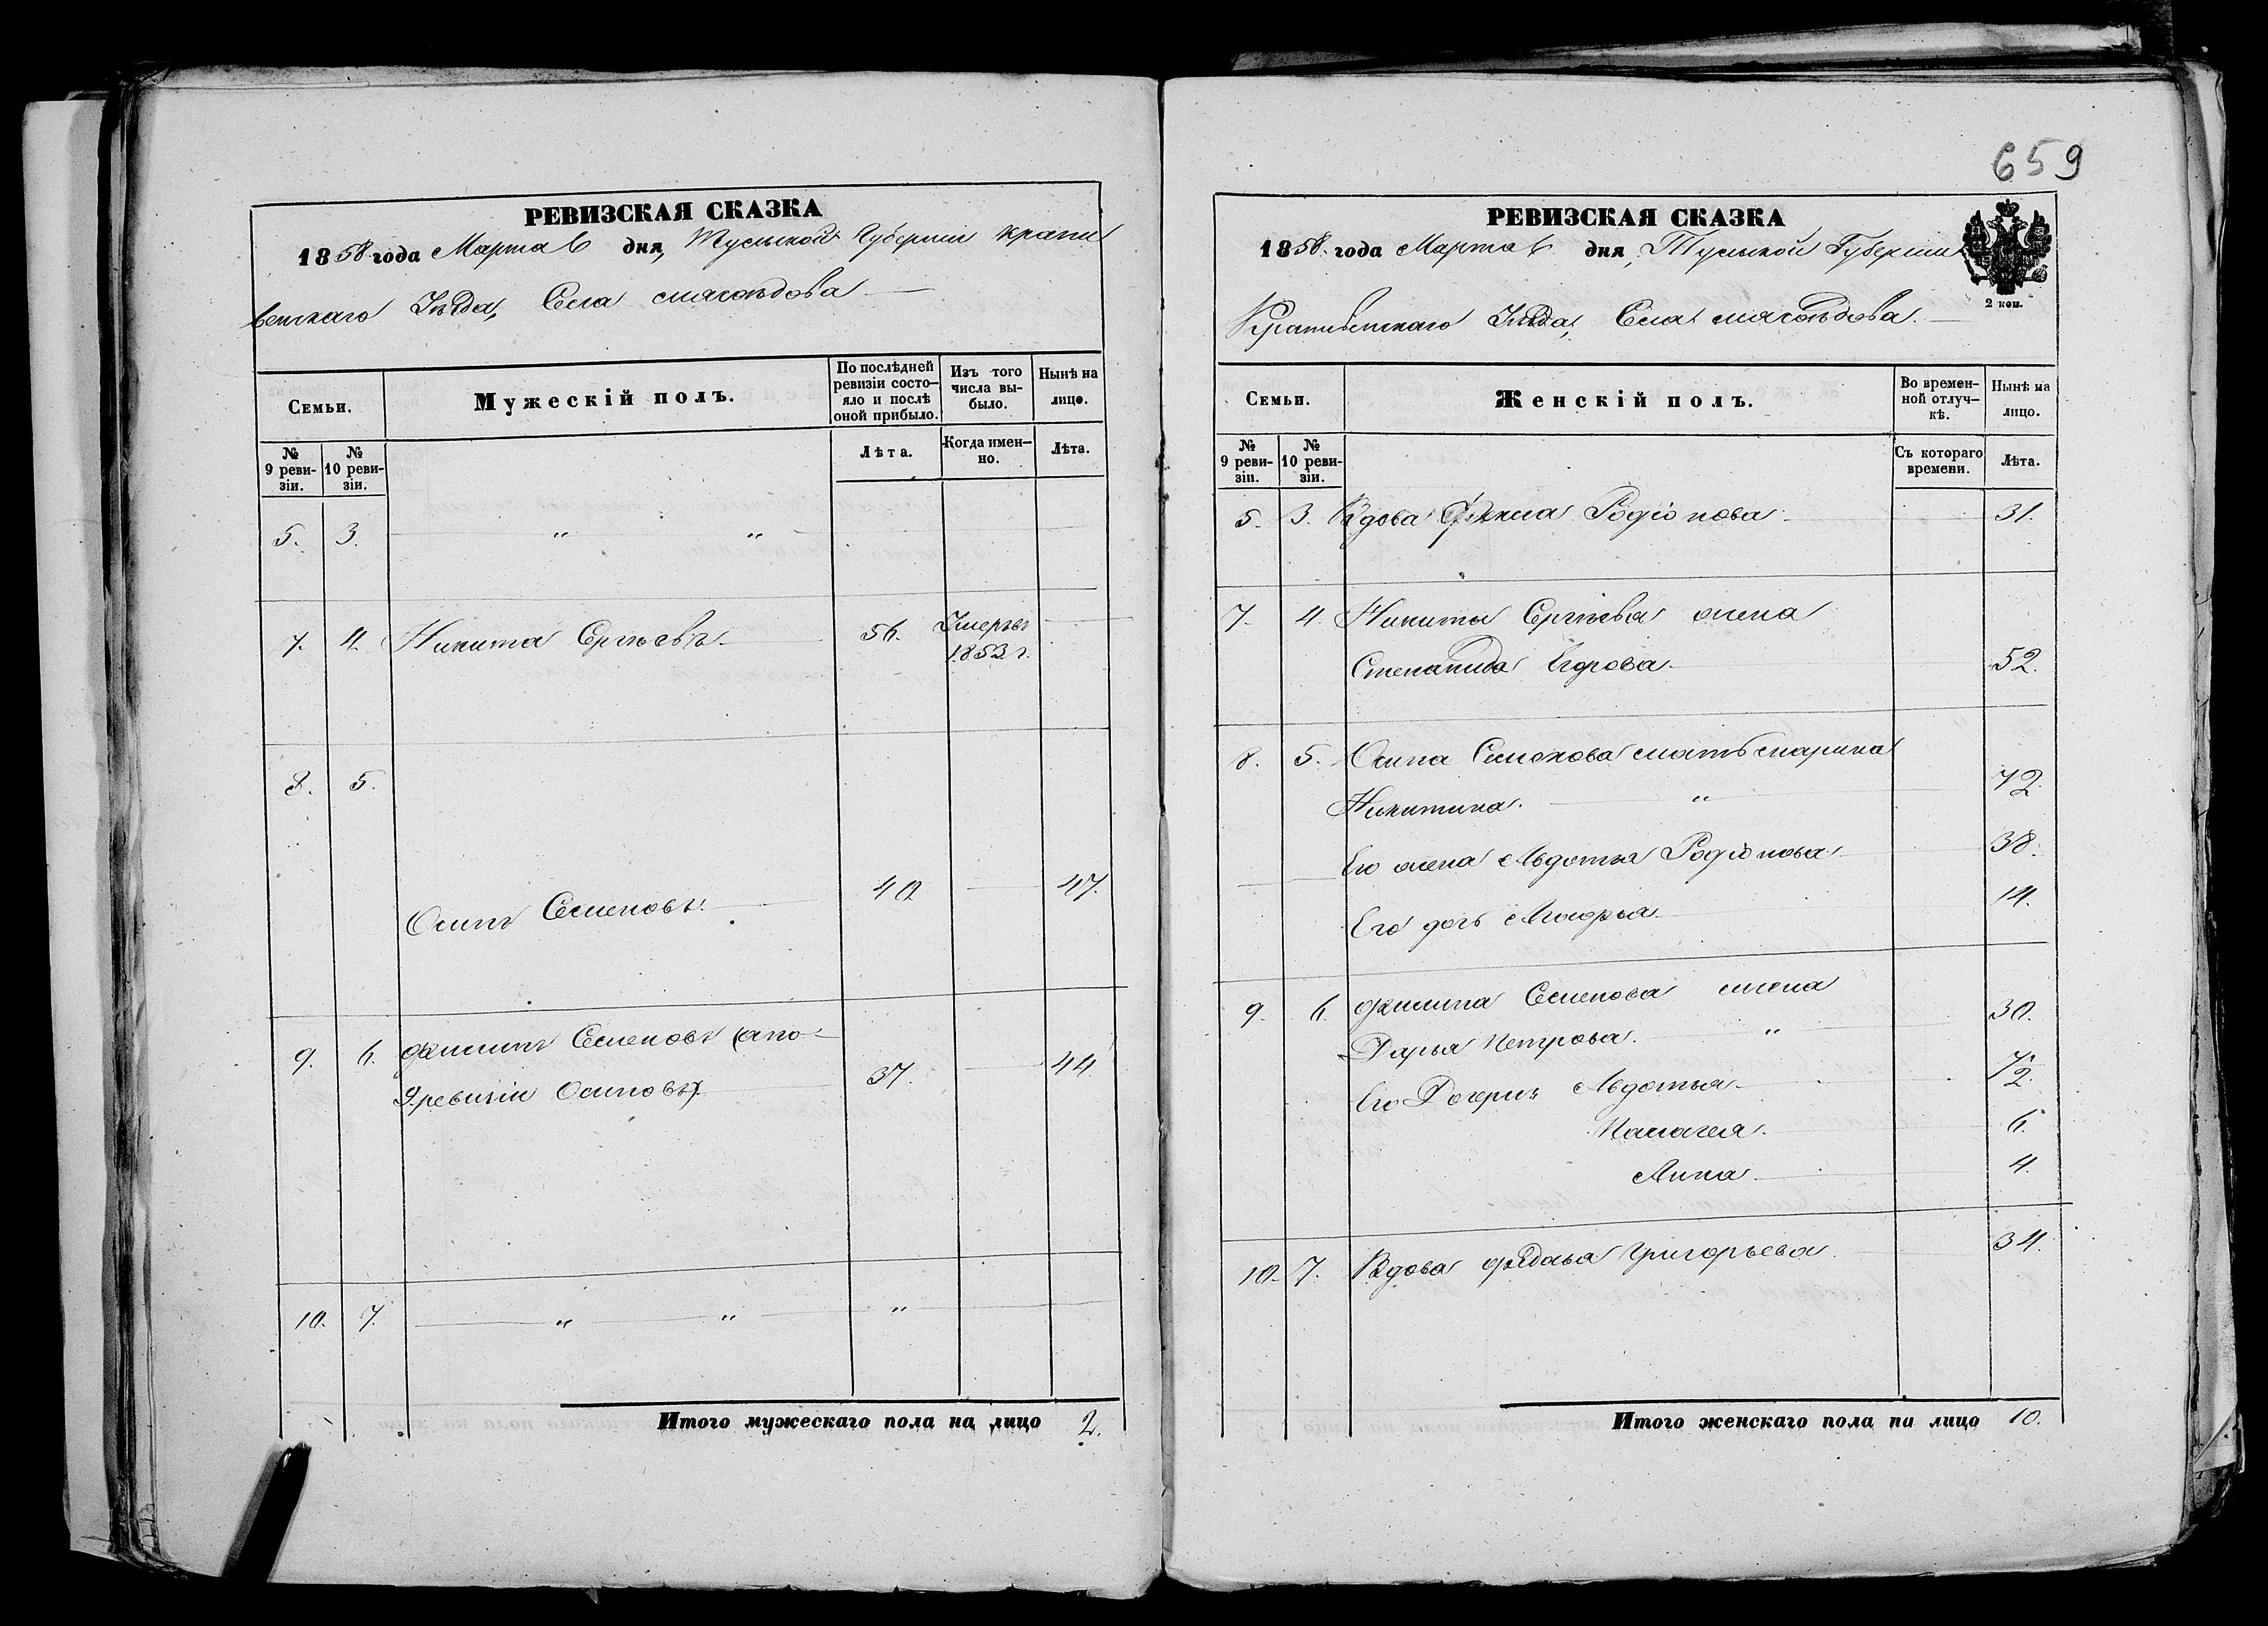 РЕВИЗСКАЯ СКАЗКА
1858 года Марта 6 дня, Тульской Губернии Крапи
венскаго Уѣзда, Села Мясоѣдова
Семьи.
Мужескій полъ.
По послѣдней ревизіи состо-
яло и послѣ оной прибыло.
Изъ того числа вы-
было.
Нынѣ на лицо.
№ 9 реви-
зіи.
№ 10 реви-
зіи.
Лѣта.
Когда имен-
но.
Лѣта.
5. 3. " "
7. 4. Никита Сергѣевъ 56. Умеръ
1853 г.
8. 5.
Осипъ Семеновъ. 40 47.
9. 6. Филипъ Семеновъ (а по
9 ревизіи Осиповъ). 37. 44
10. 7. " " "
Итого мужескаго пола на лицо 2.
659
РЕВИЗСКАЯ СКАЗКА
1858 года Марта 6 дня, Тульской Губерніи
2 коп.
Крапивенскаго Уѣзда, Села Мясоѣдова.
Семьи.
Женскій полъ.
Во времен-
ной отлуч-
кѣ.
Нынѣ на лицо.
№ 9 реви-
зіи.
№ 10 реви-
зіи.
Съ котораго времени.
Лѣта.
5. 3. Вдова Родіонова 31.
7. 4. Никиты Сергѣева жена
Степанида Егорова. 52.
8. 5. Осипа Семенова мать Марина
Никитина. " 72.
Его жена Авдотья Родіонова 38.
Его дочь 14.
9. 6. Филипа Семенова жена
Дарья Петрова. " 30.
Его Дочери: Авдотья 7½.
Палагея. 6.
Анна 4.
10. 7. Вдова Федосья Григорьева. 34.
Итого женскаго пола на лицо 10.